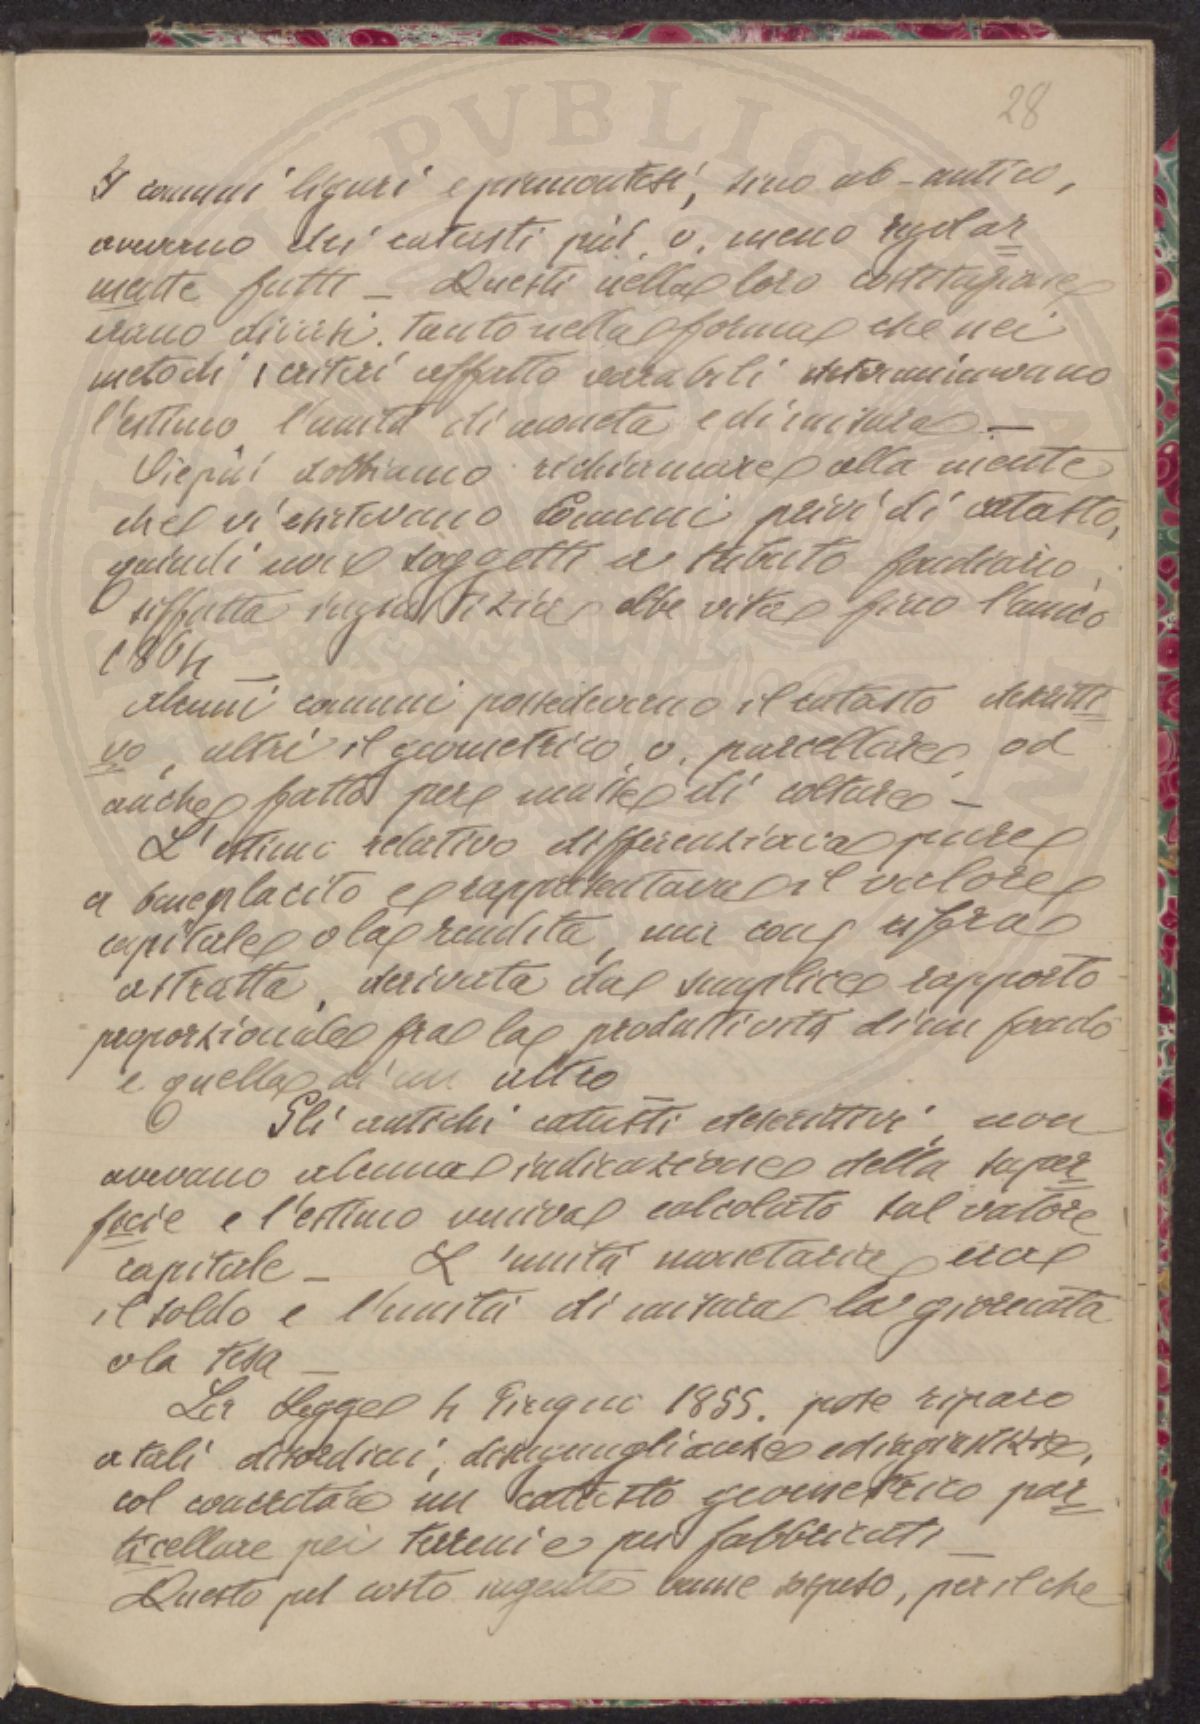 28
I comuni liguri e piemontesi, sino ab-antico,
avevano dei catasti più, o, meno regolar
mente fatti – Questi nella loro costituzione
erano diversi. tanto nella forma che nei
metodi, criteri affatto variabili determinavano
l'estimo, l'unità di moneta e di misura –
Viepiù dobbiamo richiamare alla mente
che vi esistevano Comuni privi di catasto,
quindi non soggetti a tributo fondiario,
siffatta ingiustizia ebbe vita fino l'anno
1864
Alcuni comuni possedevano il catasto descritti
vo, altri il geometrico, o, parcellare, od
anche fatto per masse di colture –
L'estimo relativo differenziava pure
a beneplacito e rappresentava il valore
capitale o la rendita, in con cifra
astratta, derivata dal semplice rapporto
proporzionale fra la produttività di un fondo
e quella di un altro
Gli antichi catasti descrittivi, non
avevano alcuna indicazione della super
ficie e l'estimo veniva calcolato sul valore
capitale – L'unità monetaria era
il soldo e l'unità di misura la giornata
o la tesa –
La Legge 4 Giugno 1855. pose riparo
a tali disordini, disuguaglianze ed ingiustizie,
col concretare un catasto geometrico par
ticellare pei terreni e pei fabbricati –
Questo pel costo ingente venne sospeso, per il che
PVBLICA